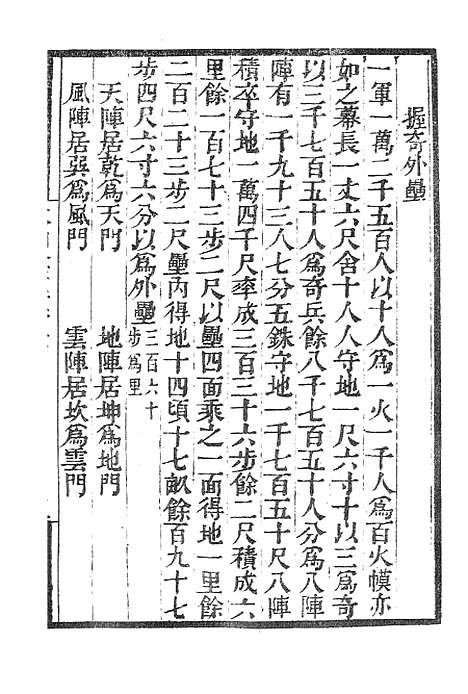 握奇外壘
一軍一萬二千五百人以十人爲一火一千人爲百火幙亦
如之幕長一丈六尺舍十人人守地一尺六寸十以三爲奇
以三千七百五十人爲奇兵餘八千七百五十人分爲八陣
陣有一千九十三人七分五銖守地一千七百五十尺八陣
積卒守地一萬四千尺率成二百三十六步餘二尺積成六
里餘一百七十三步二尺以壘四面乘之一面得地一里餘
二百二十三步二尺壘內得地十四頃十七畝餘百九十七
步四尺六寸六分以爲外壘三百六十
步爲里
天陣居乾爲天門 地陣居坤爲地門
風陣居巽爲風門 雲陣居坎爲雲門